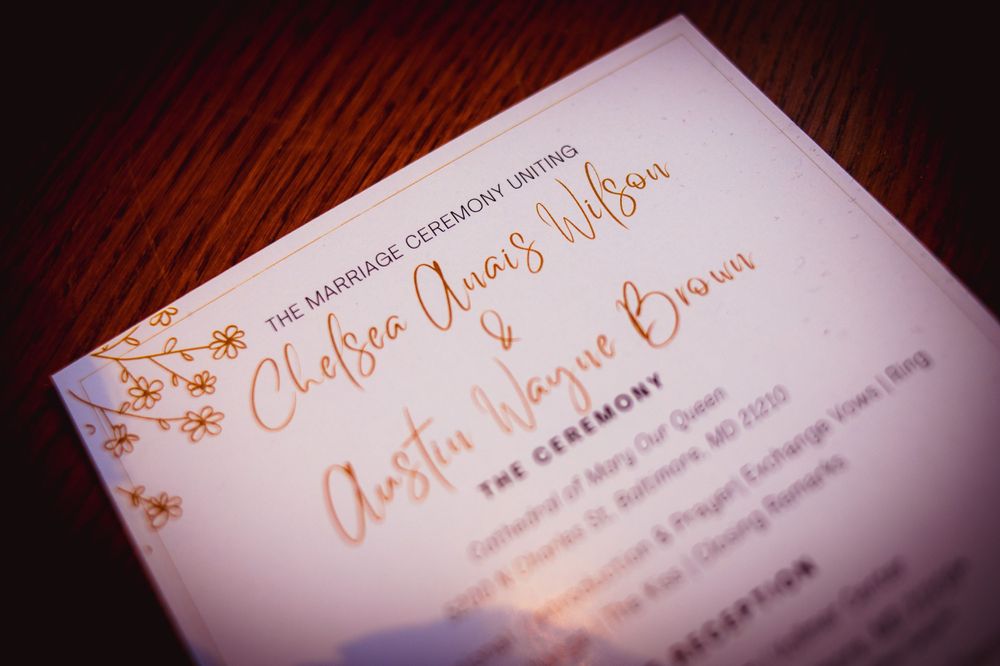 THE MARRIAGE CEREMONY UNITING
Chelsea Anais Wilson
&
Austin Wayne Brown
THE CEREMONY
Cathedral of Mary Our Queen
5200 N Charles St. Baltimore, MD 21210
Introduction & Prayer| Exchange Vows | Ring
The Ass | Closing Remarks
RECEPTION